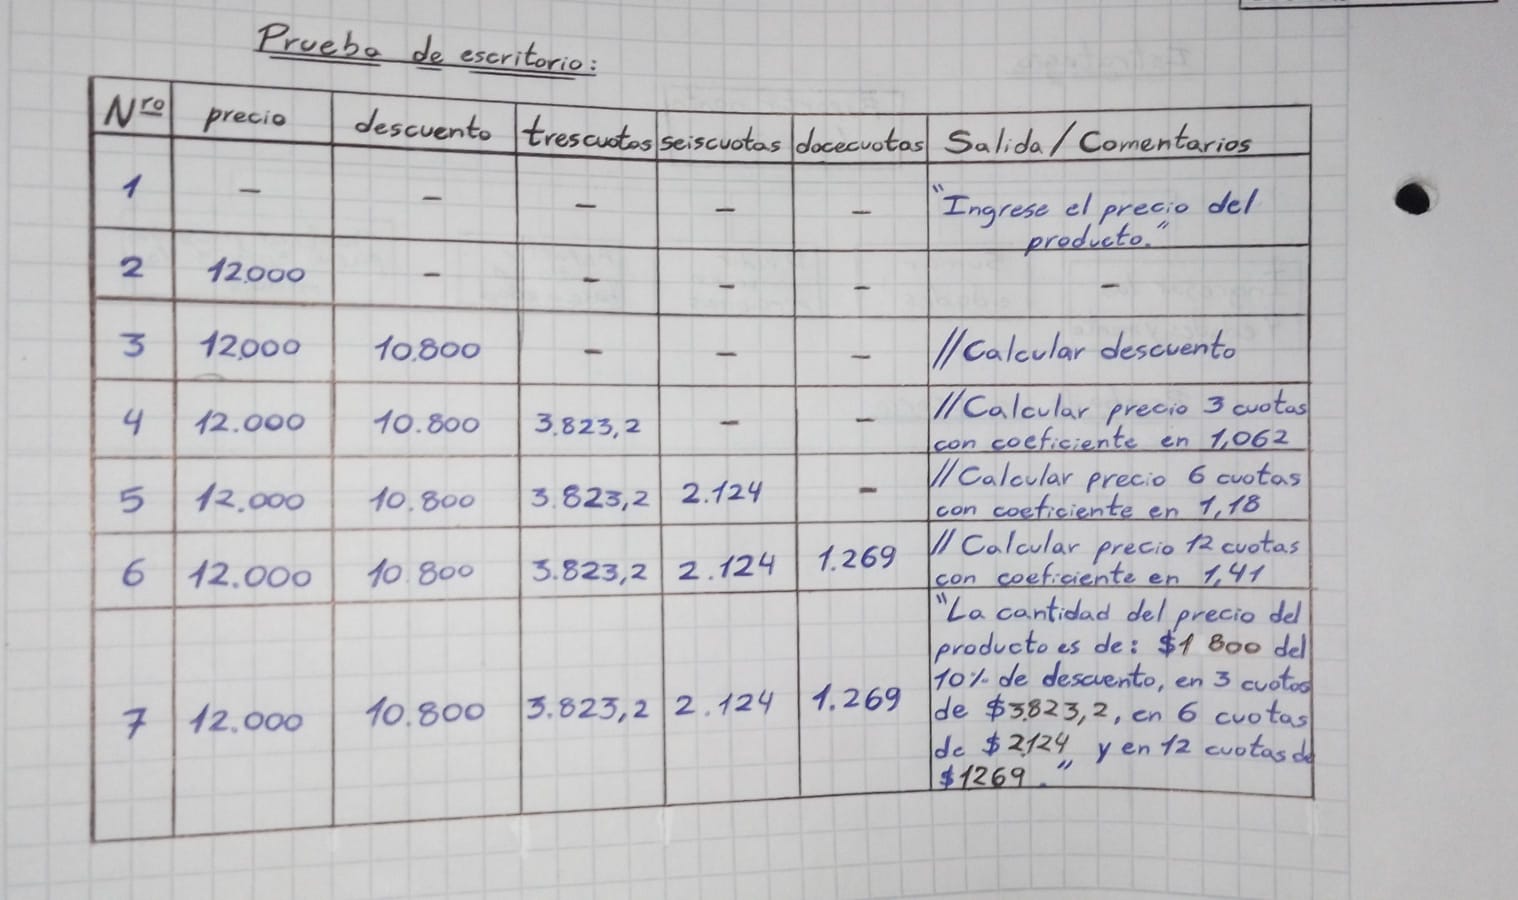 Prueba de escritorio:
Nro precio descuento trescuotas seiscuotas docecuotas Salida/Comentarios
1 - - - - - "Ingrese el precio del
producto."
2 12.000 - - - - -
3 12.000 10.800 - - - //Calcular descuento
4 12.000 10.800 3.823,2 - - //Calcular precio 3 cuotas
con coeficiente en 1,062
5 12.000 10.800 3.823,2 2.124 - //Calcular precio 6 cuotas
con coeficiente en 1,18
6 12.000 10.800 3.823,2 2.124 1.269 //Calcular precio 12 cuotas
con coeficiente en 1,41
7 12.000 10.800 3.823,2 2.124 1.269 "La cantidad del precio del
producto es de: $1 800 del
10% de descuento, en 3 cuotas
de $3.823,2, en 6 cuotas
de $2.124 y en 12 cuotas de
$1269."